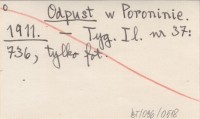 Odpust w Poroninie.
1911. – Tyg. Il. nr 37:
736, tylko fot.